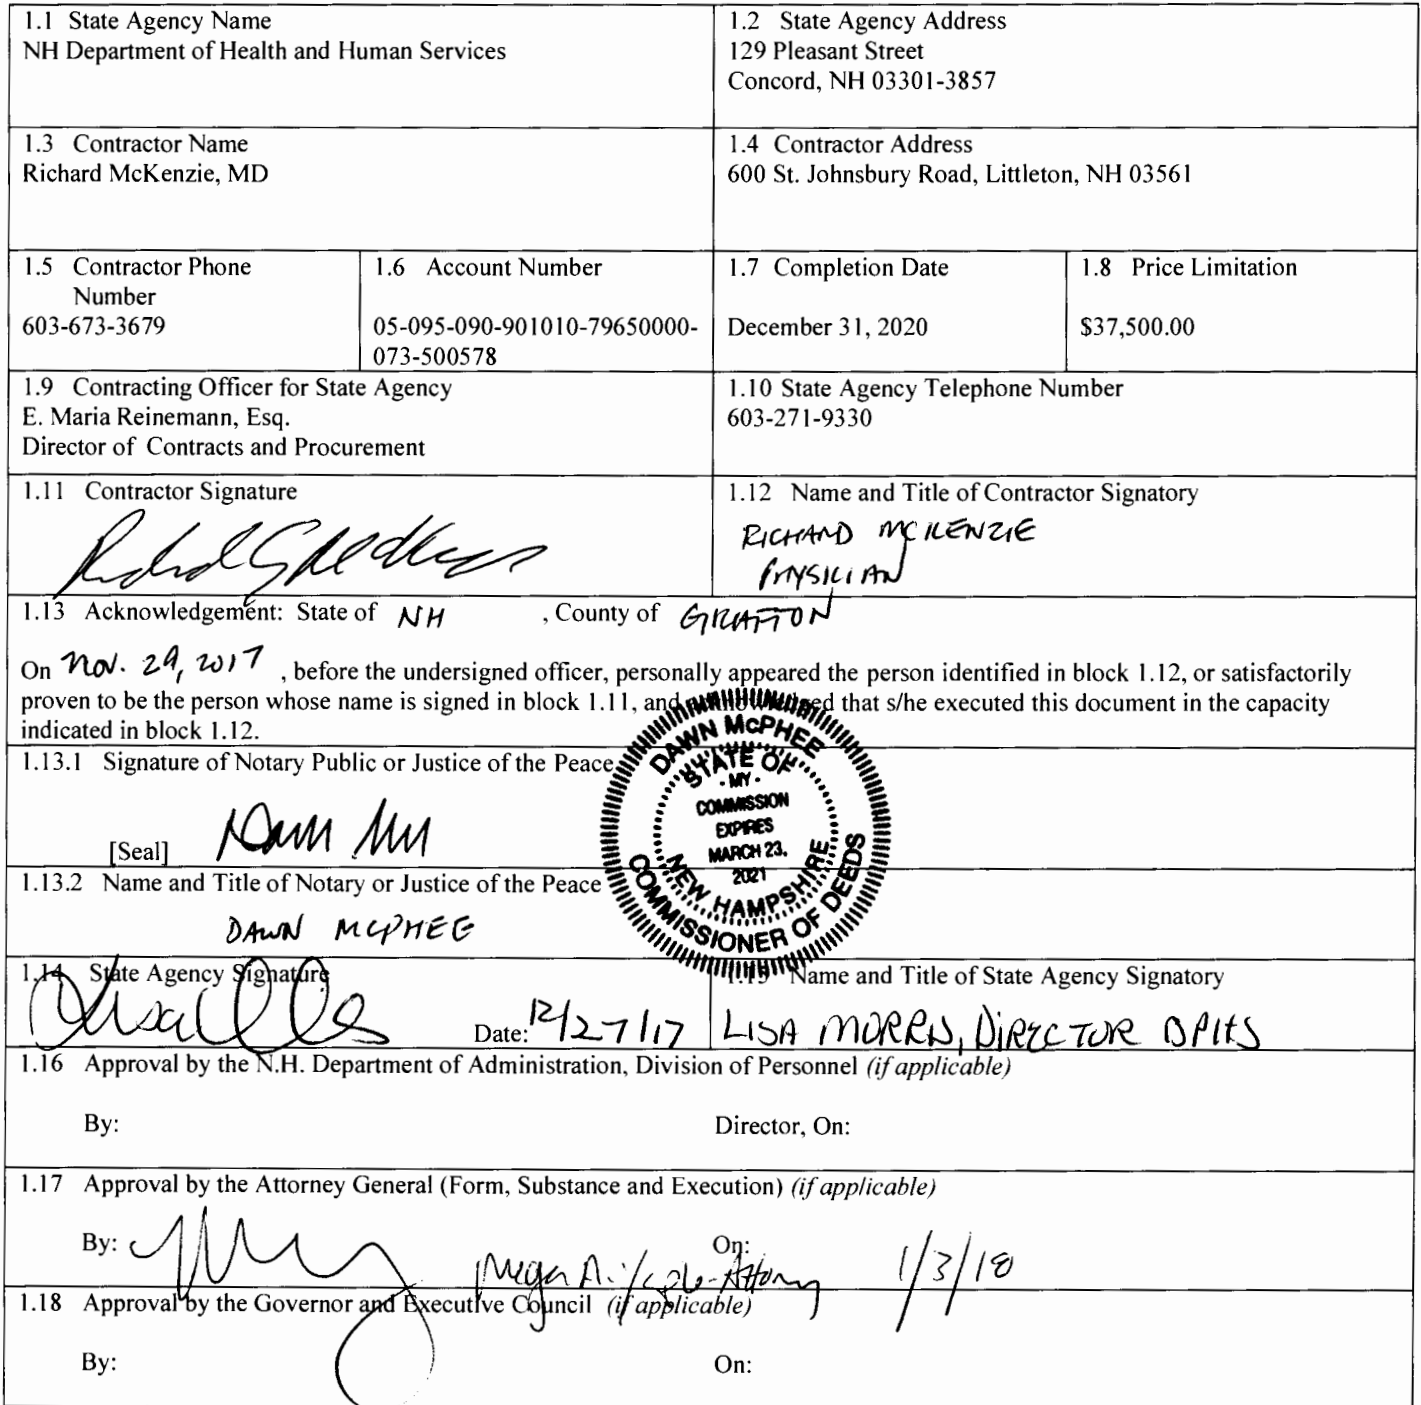 1.1 State Agency Name
NH Department of Health and Human Services
1.2 State Agency Address
129 Pleasant Street
Concord, NH 03301-3857
1.3 Contractor Name
Richard McKenzie, MD
1.4 Contractor Address
600 St. Johnsbury Road, Littleton, NH 03561
1.5 Contractor Phone
Number
603-673-3679
1.6 Account Number
05-095-090-901010-79650000-
073-500578
1.7 Completion Date
December 31, 2020
1.8 Price Limitation
$37,500.00
1.9 Contracting Officer for State Agency
E. Maria Reinemann, Esq.
Director of Contracts and Procurement
1.10 State Agency Telephone Number
603-271-9330
1.11 Contractor Signature
1.12 Name and Title of Contractor Signatory
RICHARD MCKENZIE
PHYSICIAN
1.13 Acknowledgement: State of NH , County of GRAFTON
On Nov. 29, 2017 , before the undersigned officer, personally appeared the person identified in block 1.12, or satisfactorily
proven to be the person whose name is signed in block 1.11, and acknowledged that s/he executed this document in the capacity
indicated in block 1.12.
1.13.1 Signature of Notary Public or Justice of the Peace
[Seal]
DAWN McPHEE
STATE OF
- MY -
COMMISSION
EXPIRES
MARCH 23,
2021
NEW HAMPSHIRE
COMMISSIONER OF DEEDS
1.13.2 Name and Title of Notary or Justice of the Peace
DAWN MCPHEE
1.14 State Agency Signature
Date: 12/27/17
1.15 Name and Title of State Agency Signatory
LISA MORRIS, DIRECTOR DPHS
1.16 Approval by the N.H. Department of Administration, Division of Personnel (if applicable)
By:
Director, On:
1.17 Approval by the Attorney General (Form, Substance and Execution) (if applicable)
By:
On: 1/3/18
1.18 Approval by the Governor and Executive Council (if applicable)
By:
On: